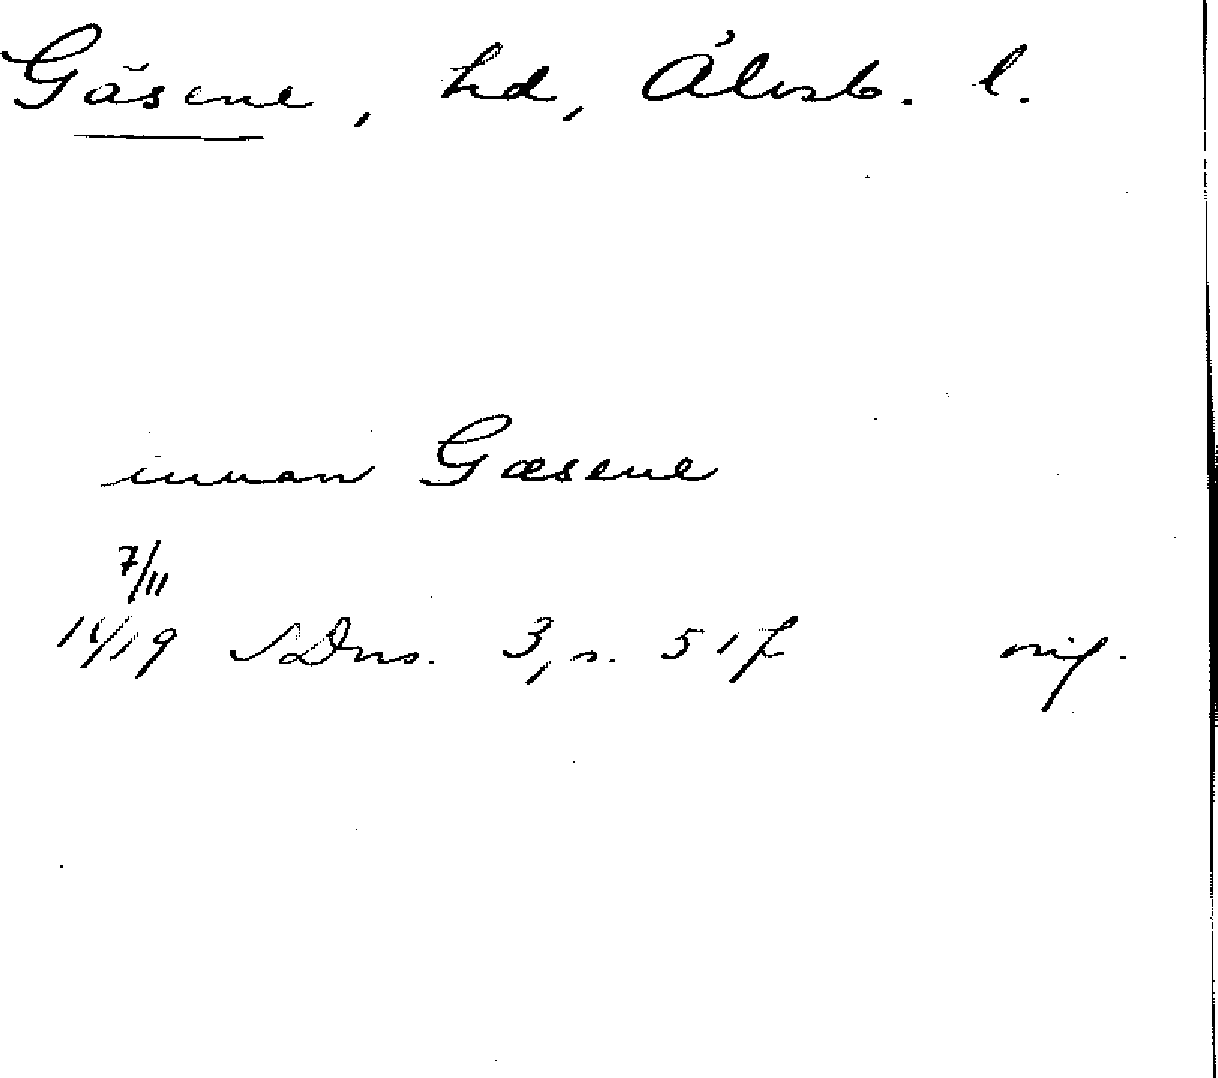 Gäsene, hd, Älvsb. l.
innan Gæsene
7/11
1419 SDns. 3, s. 517 orig.